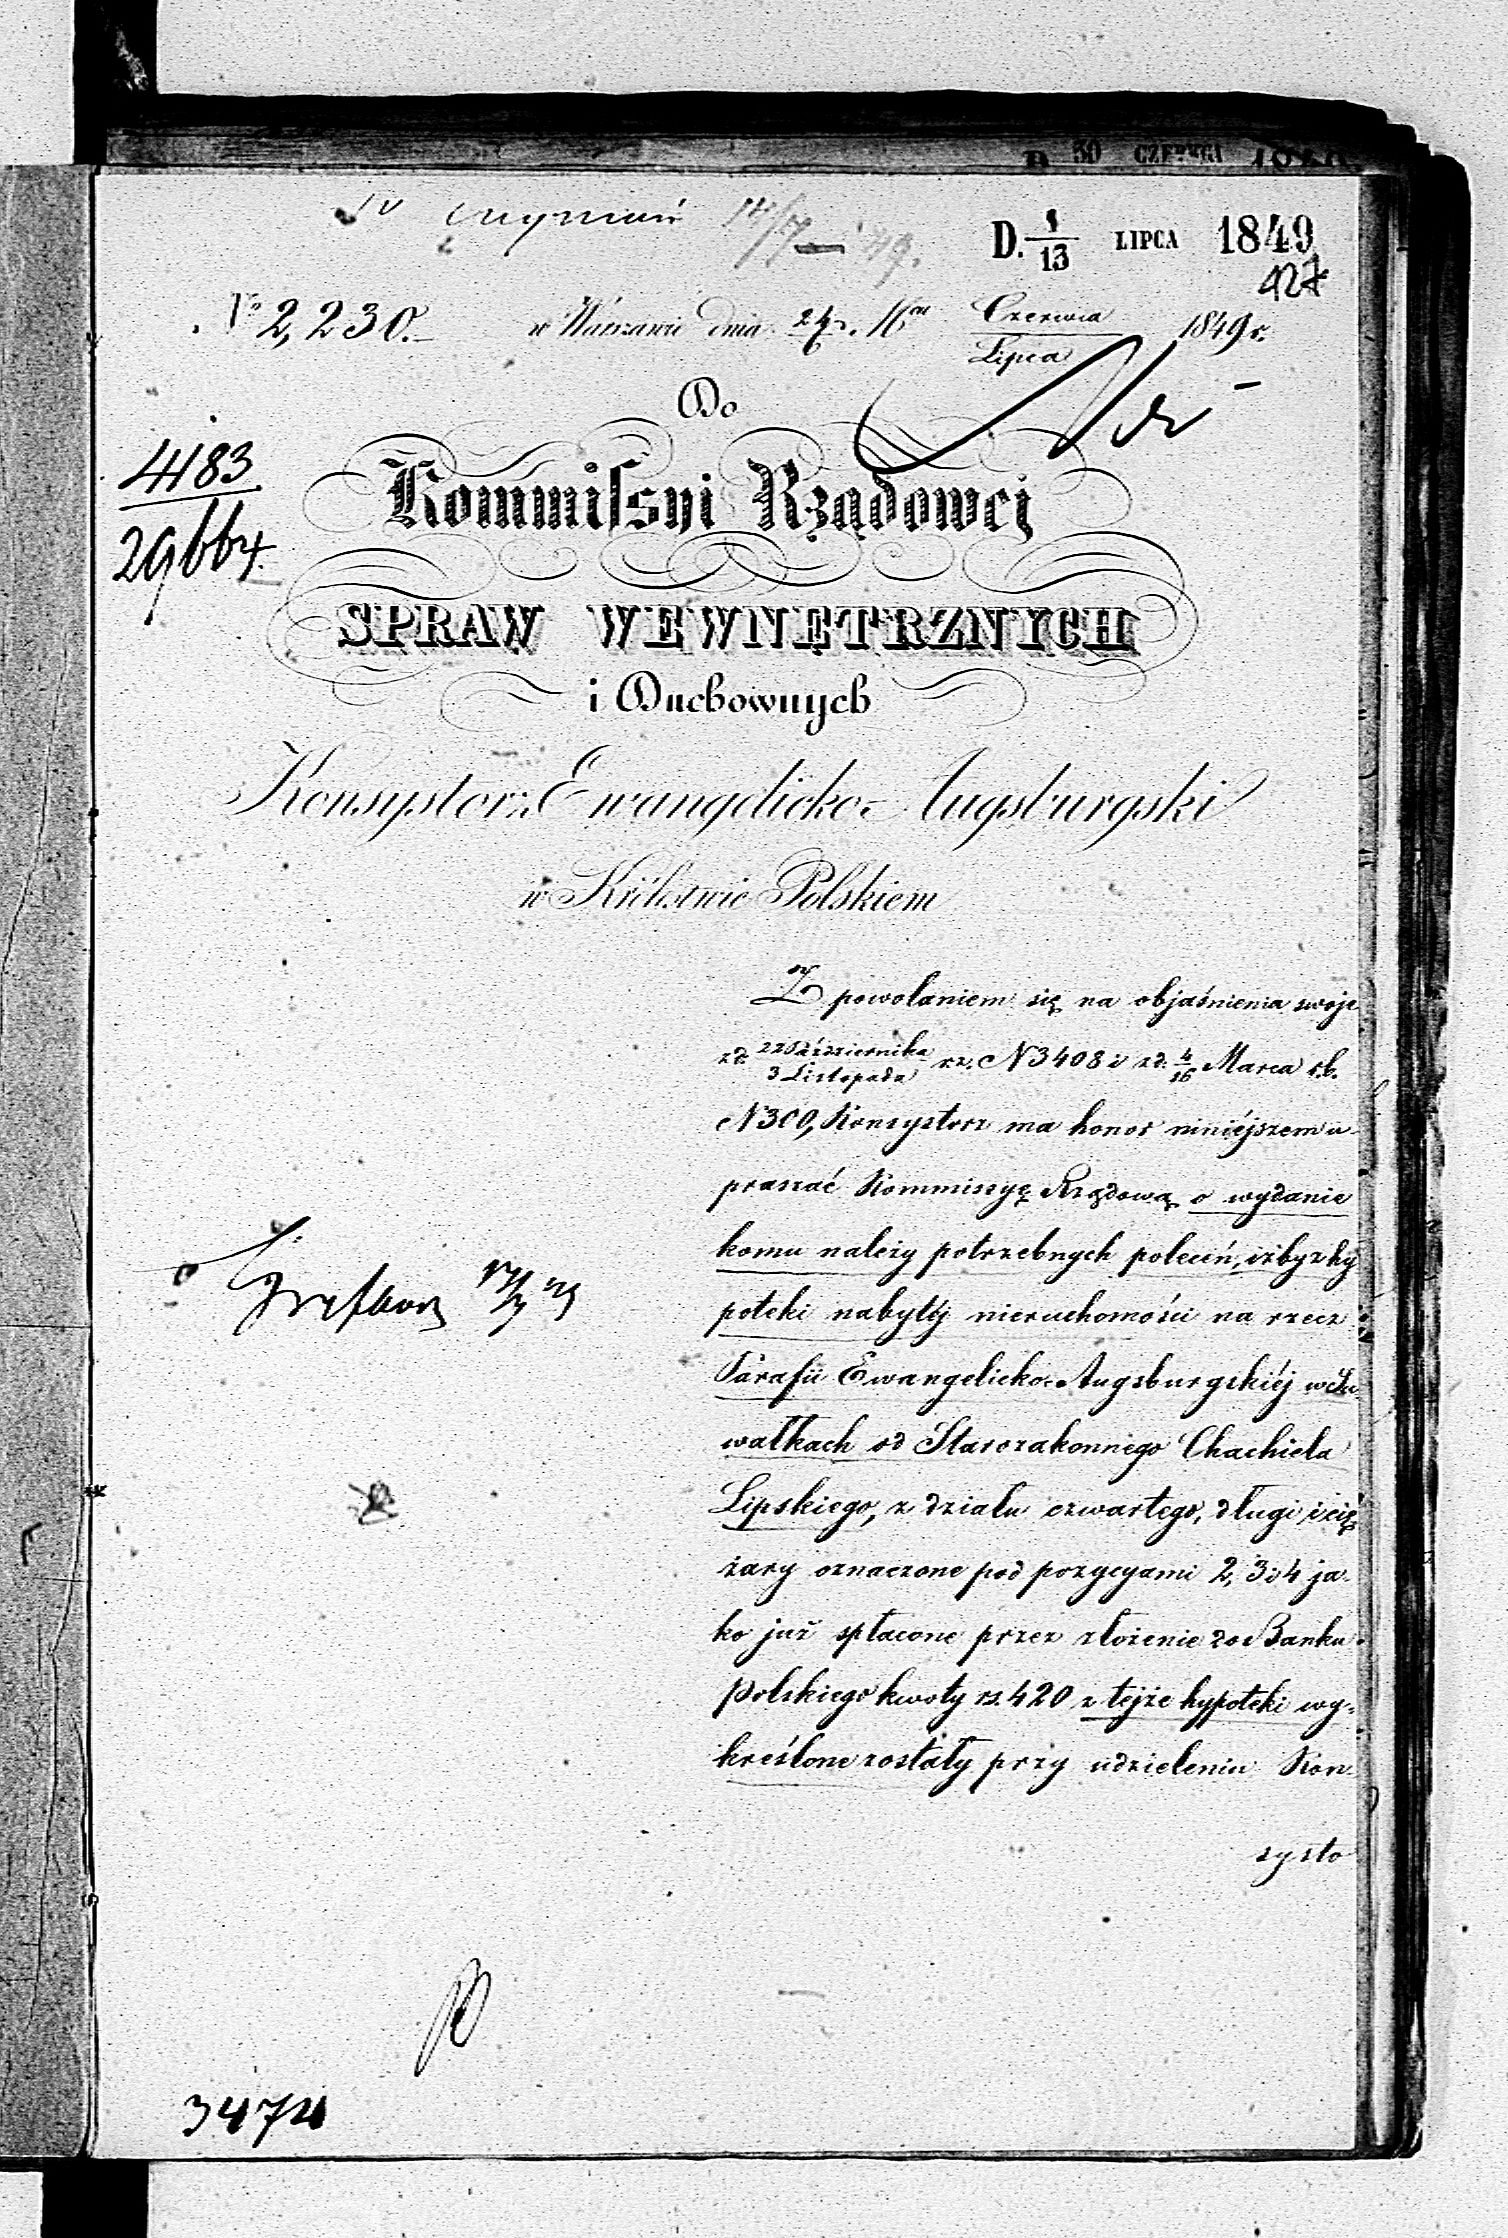 D. 1/13 LIPCA 1849
427
№ 2,230. w Warszawie dnia 24/6. Mca Czerwca/Lipca 1849 r.
Do
4183
29664.
Kommissyi Rządowej
SPRAW WEWNĘTRZNYCH
i Duchownych
Konsystorz Ewangelicko-Augsburgski
w Królestwie Polskiem
Z powołaniem się na objaśnienia swoje
z d. 22 Października/3 Listopada r.z. N 3408 i z d. 4/16 Marca r.b.
N 300, Konsystorz ma honor niniéjszem u-
praszać Kommissyę Rządową o wydanie
komu należy potrzebnych poleceń, iżby z hy
poteki nabytéj nieruchomości na rzecz
Parafii Ewangelicko-Augsburgskiéj w Su-
wałkach od Starozakonnego Chachiela
Lipskiego, z działu czwartego, długi i cię
żary oznaczone pod pozycyami 2, 3 i 4 ja-
ko już spłacone przez złożenie do Banku
Polskiego kwoty rs. 420 z tejże hypoteki wy-
kreślone zostały przy udzieleniu Kon-
systo
3474